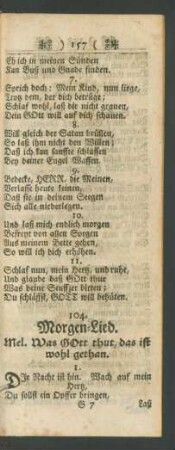 ) 157 (
Eh ich in meinen Sünden
Kan Buß und Gnade finden.
7.
Sprich doch: Mein Kind, nun liege,
Trotz dem, der dich betrüge;
Schlaf wohl, laß dir nicht grauen,
Dein GOtt will auf dich schauen.
8.
Will gleich der Satan brüllen,
So laß ihm nicht den Willen;
Daß ich kan sanffte schlaffen
Bey deiner Engel Waffen.
9.
Bedecke, HERR, die Meinen,
Verlasse heute keinen,
Daß sie in deinem Seegen
Sich alle niederlegen.
10.
Und laß mich endlich morgen
Befreyt von allen Sorgen
Aus meinem Bette gehen,
So will ich dich erhöhen.
11.
Schlaf nun, mein Hertz, und ruhe,
Und glaube daß GOtt thue
Was deine Seuffzer bieten;
Du schläffst, GOTT will behüten.
104.
Morgen-Lied.
Mel. Was GOtt thut, das ist
wohl gethan.
1.
DIe Nacht ist hin. Wach auf mein
Hertz,
Du sollst ein Opffer bringen,
G 7 Laß